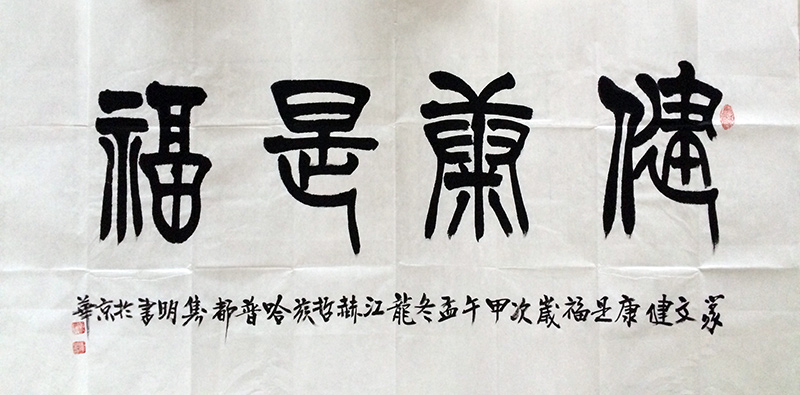 健康是福
篆文健康是福歲次甲午孟冬龍江赫哲族哈普都隽明書於京華